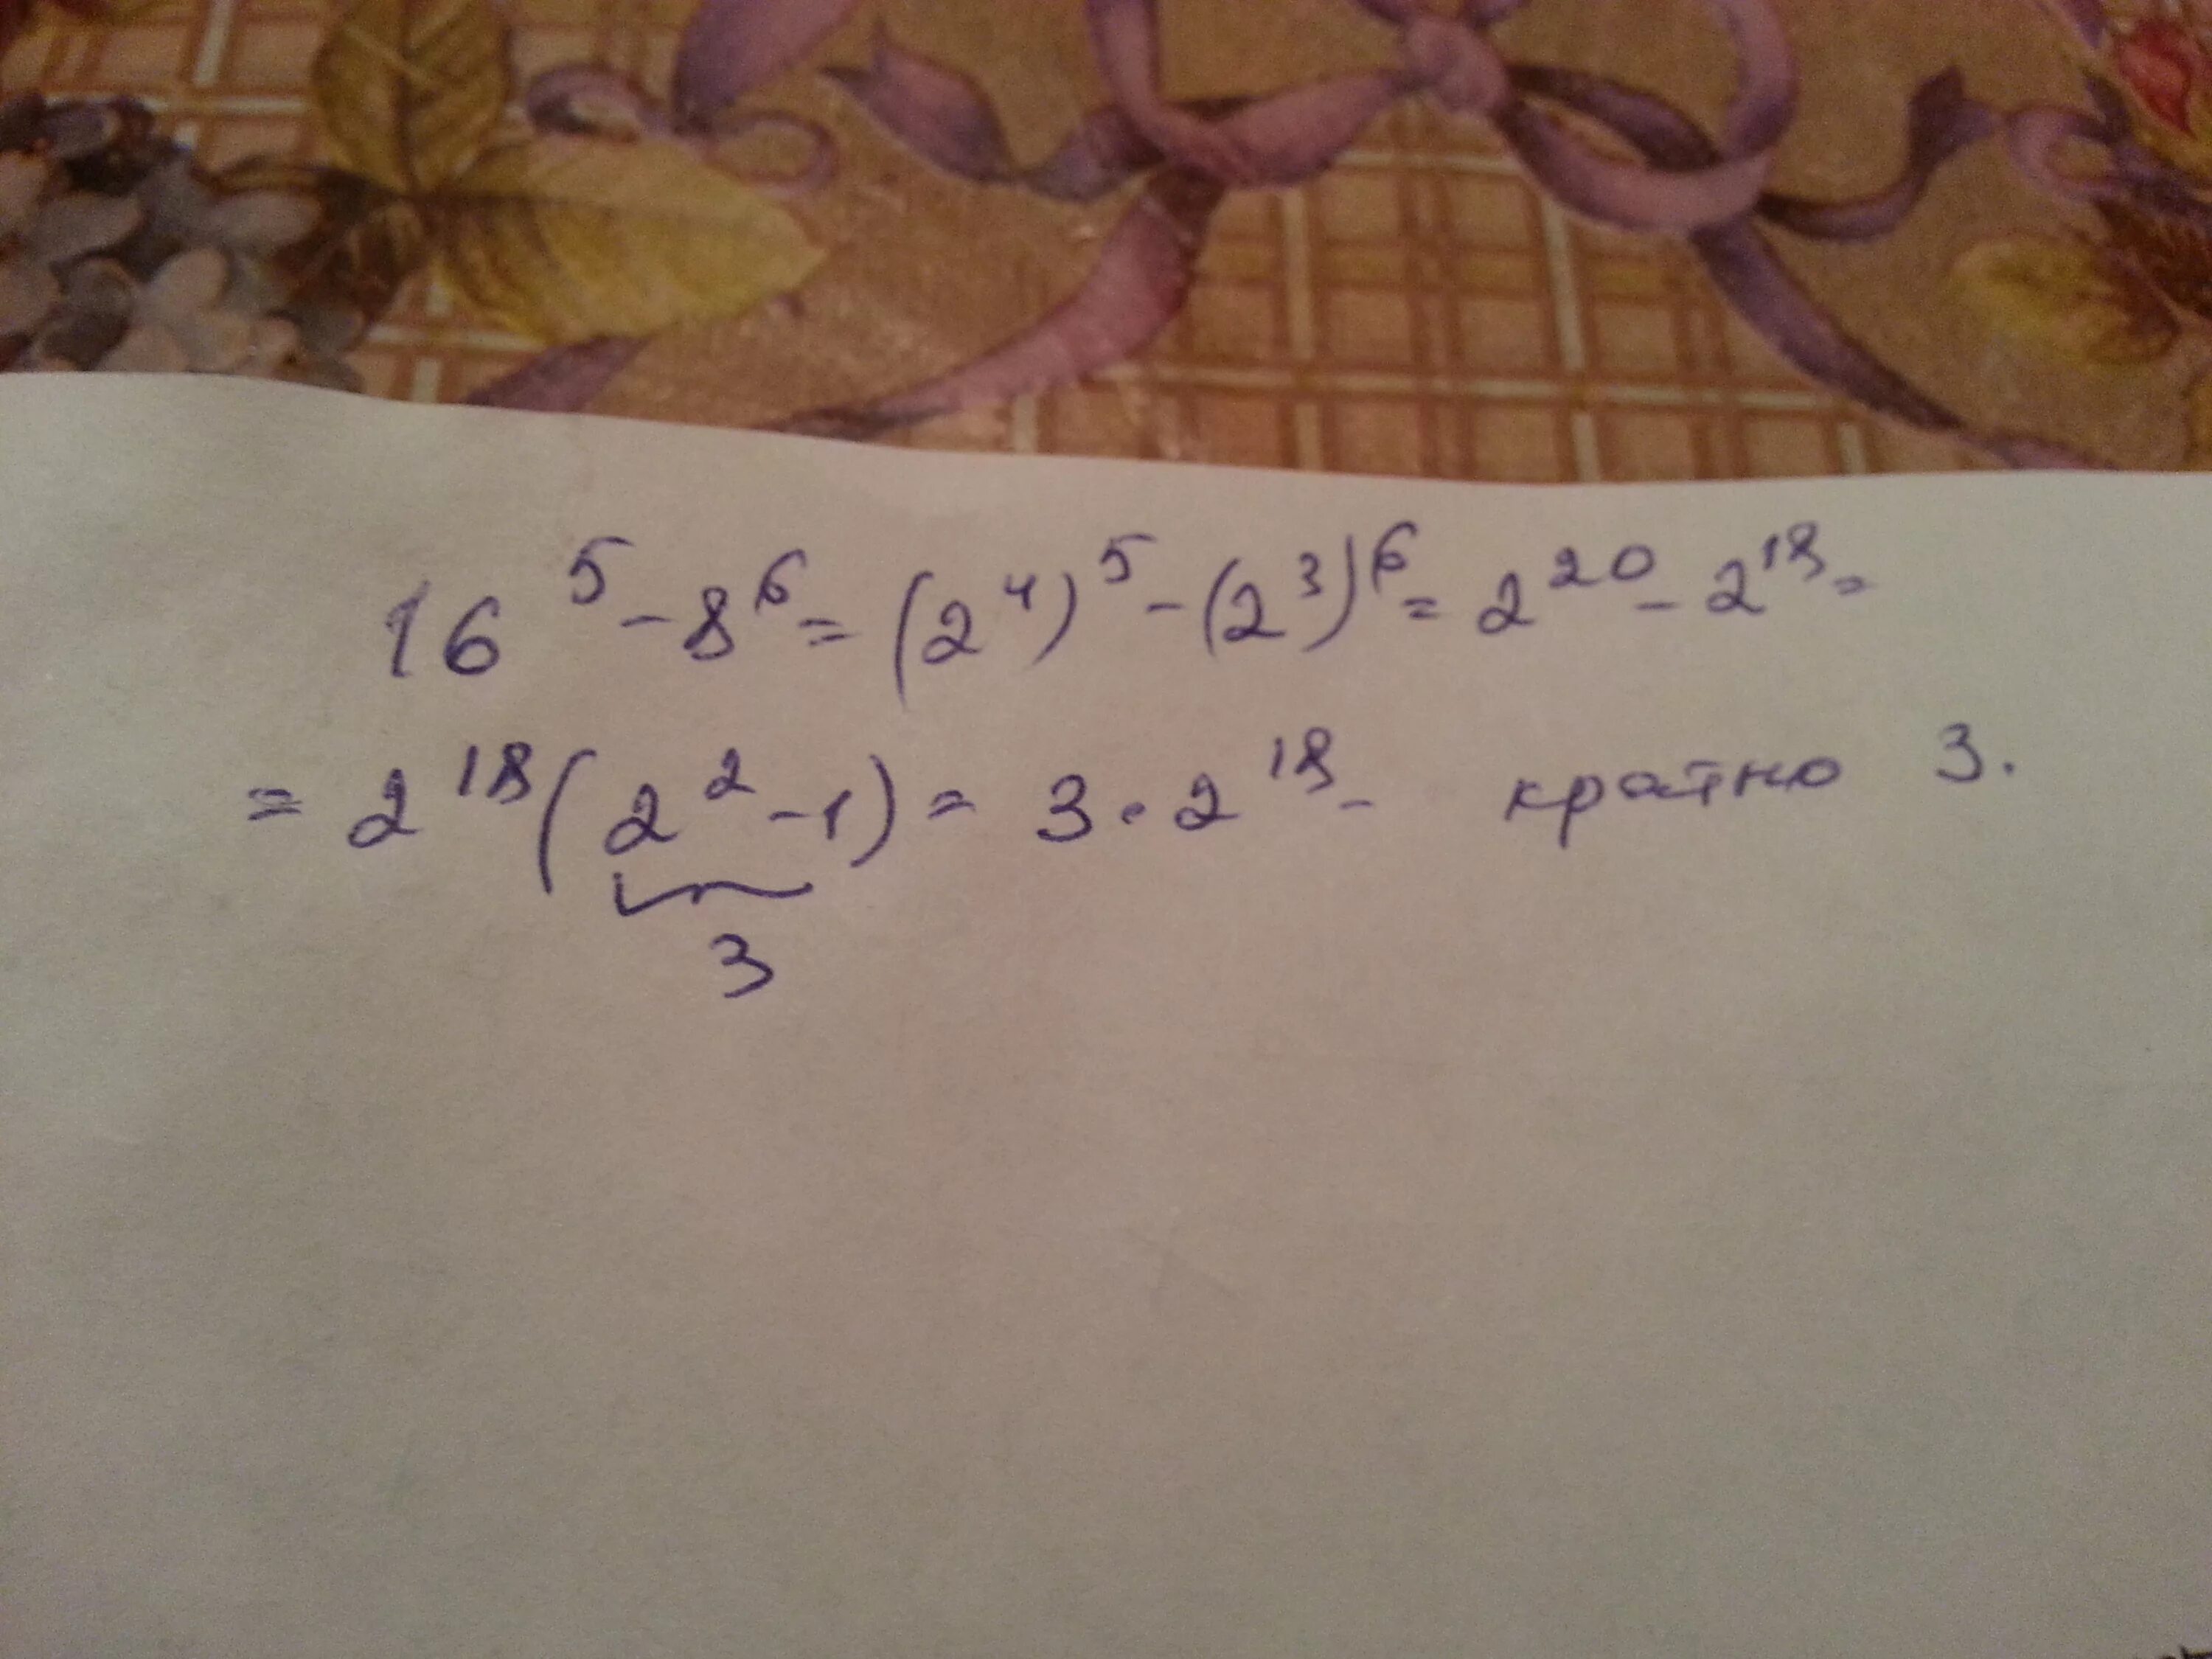 16⁵ - 8⁶ = (2⁴)⁵ - (2³)⁶ = 2²⁰ - 2¹⁸ =
= 2¹⁸(2² - 1) = 3 · 2¹⁸ - кратно 3.
3